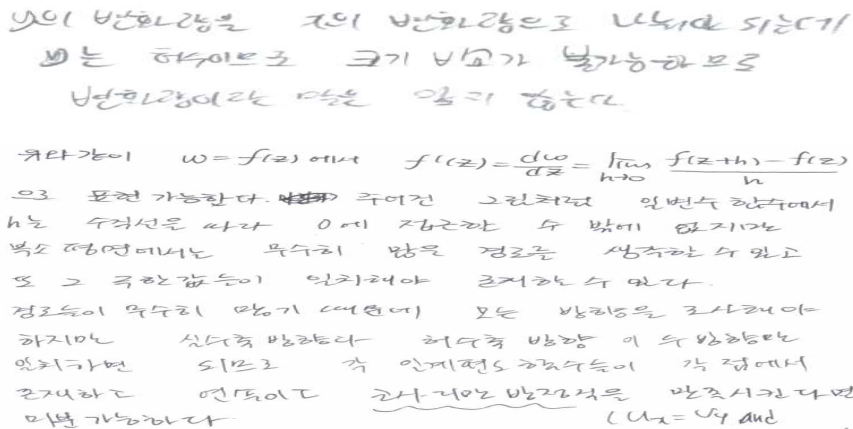 y의 변화량을 x의 변화량으로 나눠야 되는데
는 허수이므로 크기 비교가 불가능하므로
변화량이라는 말은 않는다.
위와 같이 w = f(z) 에서 f'(z) = dw/dz = lim h→0 f(z+h) - f(z) / h
으로 표현 가능한다. 주어진 그림처럼 일변수 함수에서
h는 수직선을 따라 0에 접근할 수 밖에 없지만
복소 평면에서는 무수히 많은 경로를 생각할 수 있고
또 그 극한값들이 일치해야 존재할 수 있다.
경로들이 무수히 많기 때문에 모든 방향을 조사해야
하지만 실수축 방향과 허수축 방향 이 두 방향만
일치하면 되므로 각 일계편도함수들이 각 점에서
존재하고 연속이고 코시 리만 방정식을 만족시킨다면
미분 가능하다. (Ux = Vy and